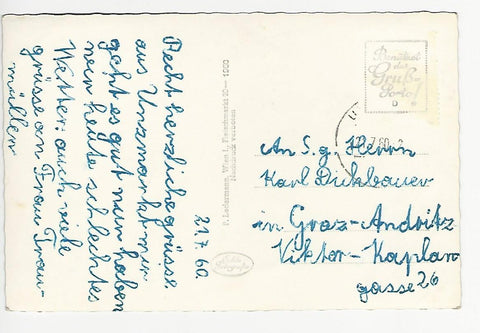 Recht herzliche grüsse
aus Unzmarkt mir
geht es gut nur haben
wir heute schlechtes
Wetter: auch viele
grüsse an Frau Trau-
müller
21.7.60.
P. Ledermann, Wien I., Fleischmarkt 20—
Nachdruck verboten
Benützet
das
Gruß-
Porto!
D
7.60
An S.g. Herrn
Karl Dickbauer
in Graz-Andritz
Viktor-Kaplan
gasse 26